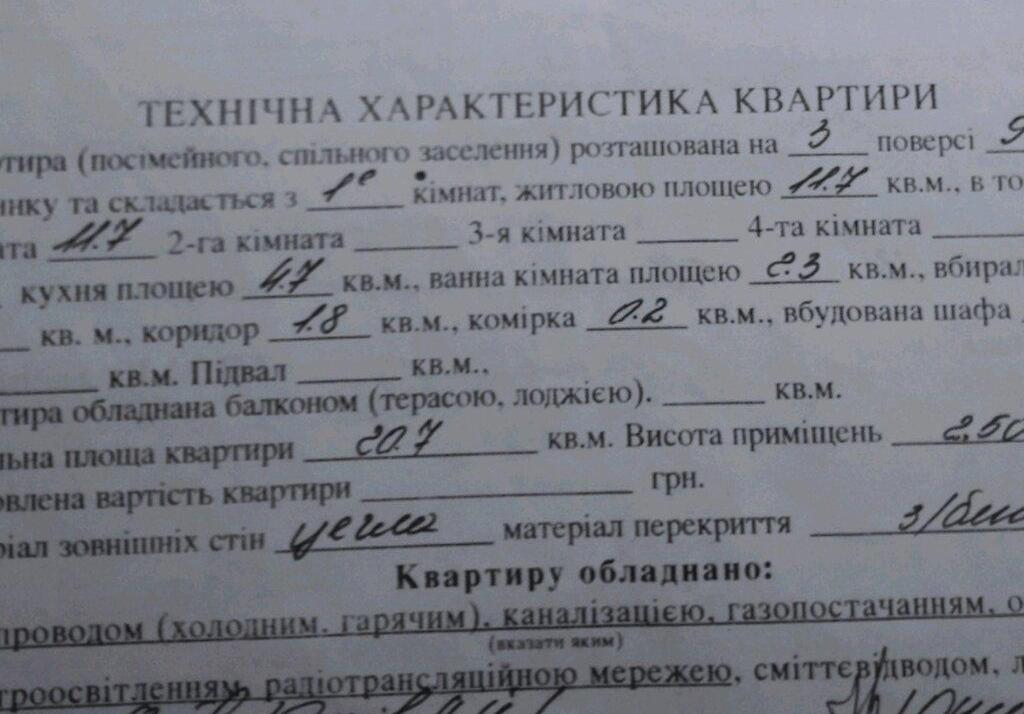 ТЕХНІЧНА ХАРАКТЕРИСТИКА КВАРТИРИ
тира (посімейного, спільного заселення) розташована на 3 поверсі 9
инку та складається з 1º кімнат, житловою площею 11.7 кв.м., в то
ата 11.7 2-га кімната ______ 3-я кімната ______ 4-та кімната ______
кухня площею 4.7 кв.м., ванна кімната площею 2.3 кв.м., вбирал
___ кв. м., коридор 1.8 кв.м., комірка 0.2 кв.м., вбудована шафа
______ кв.м. Підвал ______ кв.м.,
тира обладнана балконом (терасою, лоджією). ______ кв.м.
льна площа квартири 20.7 кв.м. Висота приміщень 2,50
овлена вартість квартири ______ грн.
ріал зовнішніх стін цегла матеріал перекриття з/б
Квартиру обладнано:
проводом (холодним. гарячим), каналізацією, газопостачанням, о
(вказати яким)
троосвітленням, радіотрансляційною мережею, сміттєвідводом, л